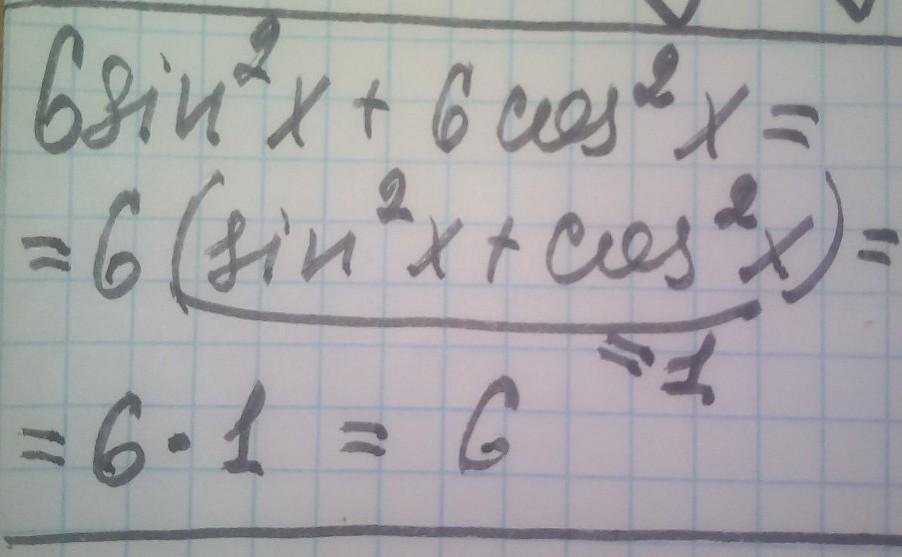 6sin²x + 6cos²x =
= 6(sin²x + cos²x) =
= 1
= 6 · 1 = 6